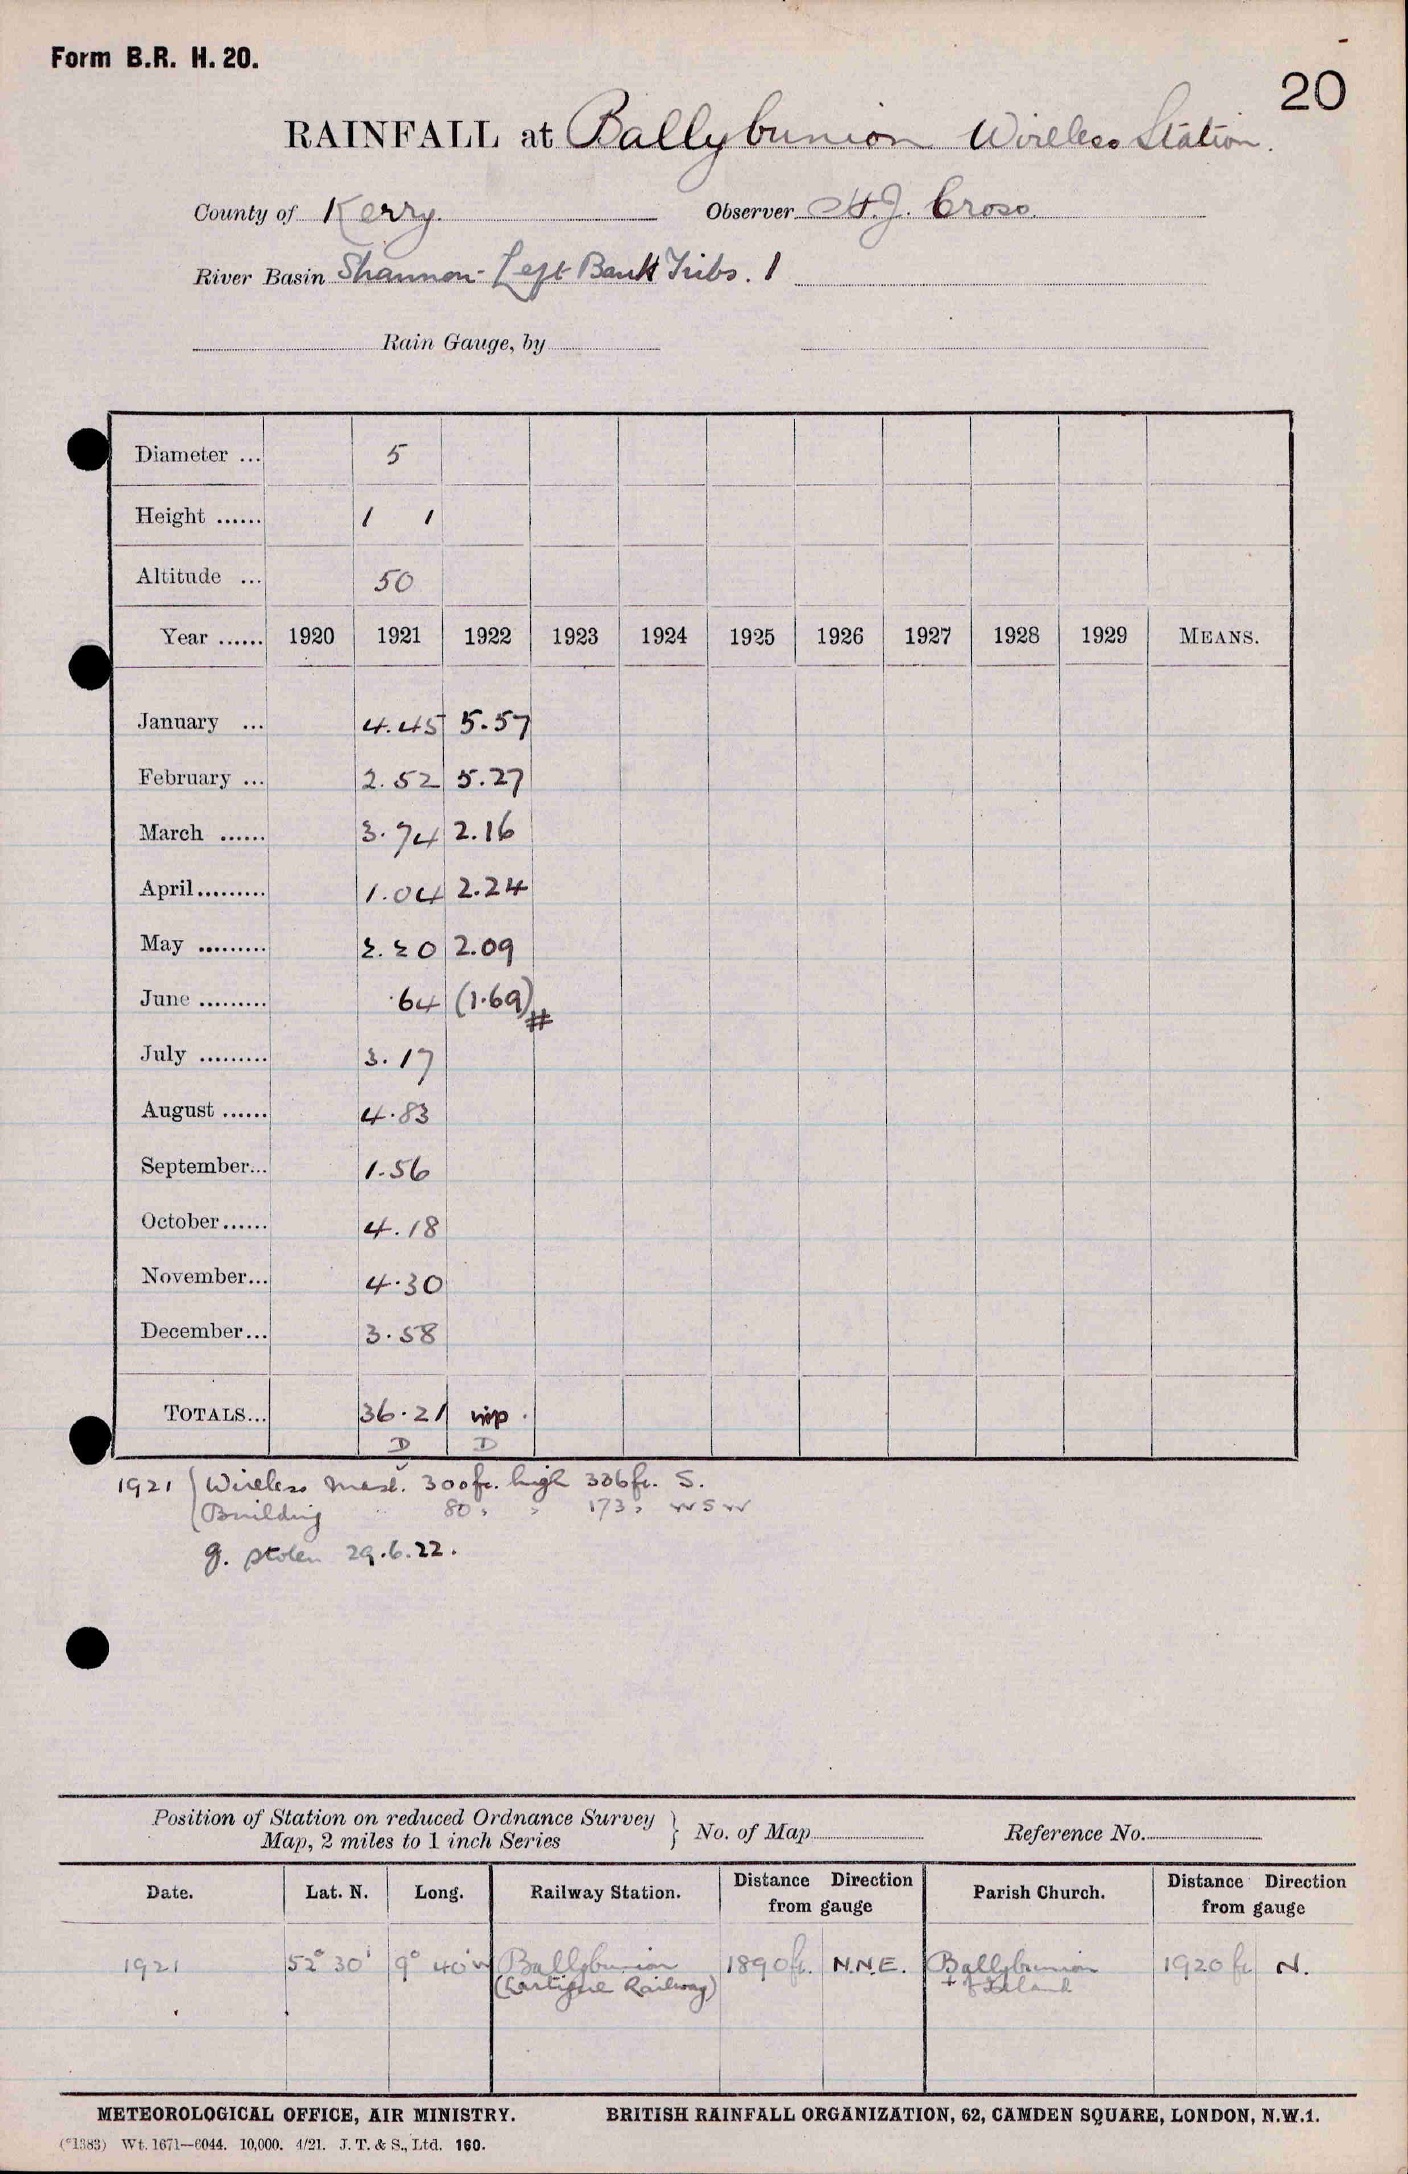 Form B.R. H. 20.
20
RAINFALL at Ballybunion Wireless Station.
County of Kerry. Observer H.J. Cross.
River Basin Shannon - Left Bank Tribs. 1
Rain Gauge, by
Diameter ... 5
Height ...... 1 1
Altitude ... 50
Year ...... 1920 1921 1922 1923 1924 1925 1926 1927 1928 1929 MEANS.
January ... 4.45 5.57
February ... 2.52 5.27
March ...... 3.74 2.16
April ......... 1.04 2.24
May ......... 2.20 2.09
June ......... .64 (1.69) #
July ......... 3.17
August ...... 4.83
September... 1.56
October...... 4.18
November... 4.30
December... 3.58
TOTALS... 36.21
D D
1921 { Wireless mast. 300 ft. high 336 ft. S.
Building 80 " " 173 " W S W
g. stolen 29.6.22.
Position of Station on reduced Ordnance Survey } No. of Map Reference No.
Map, 2 miles to 1 inch Series
Date. Lat. N. Long. Railway Station. Distance Direction from gauge Parish Church. Distance Direction from gauge
1921 52° 30' 9° 40' W Ballybunion 1890 ft. N.N.E. Ballybunion 1920 ft N.
(Lartigue Railway) + of Ireland
METEOROLOGICAL OFFICE, AIR MINISTRY. BRITISH RAINFALL ORGANIZATION, 62, CAMDEN SQUARE, LONDON, N.W.1.
(*1383) Wt. 1671—6044. 10,000. 4/21. J. T. & S., Ltd. 160.